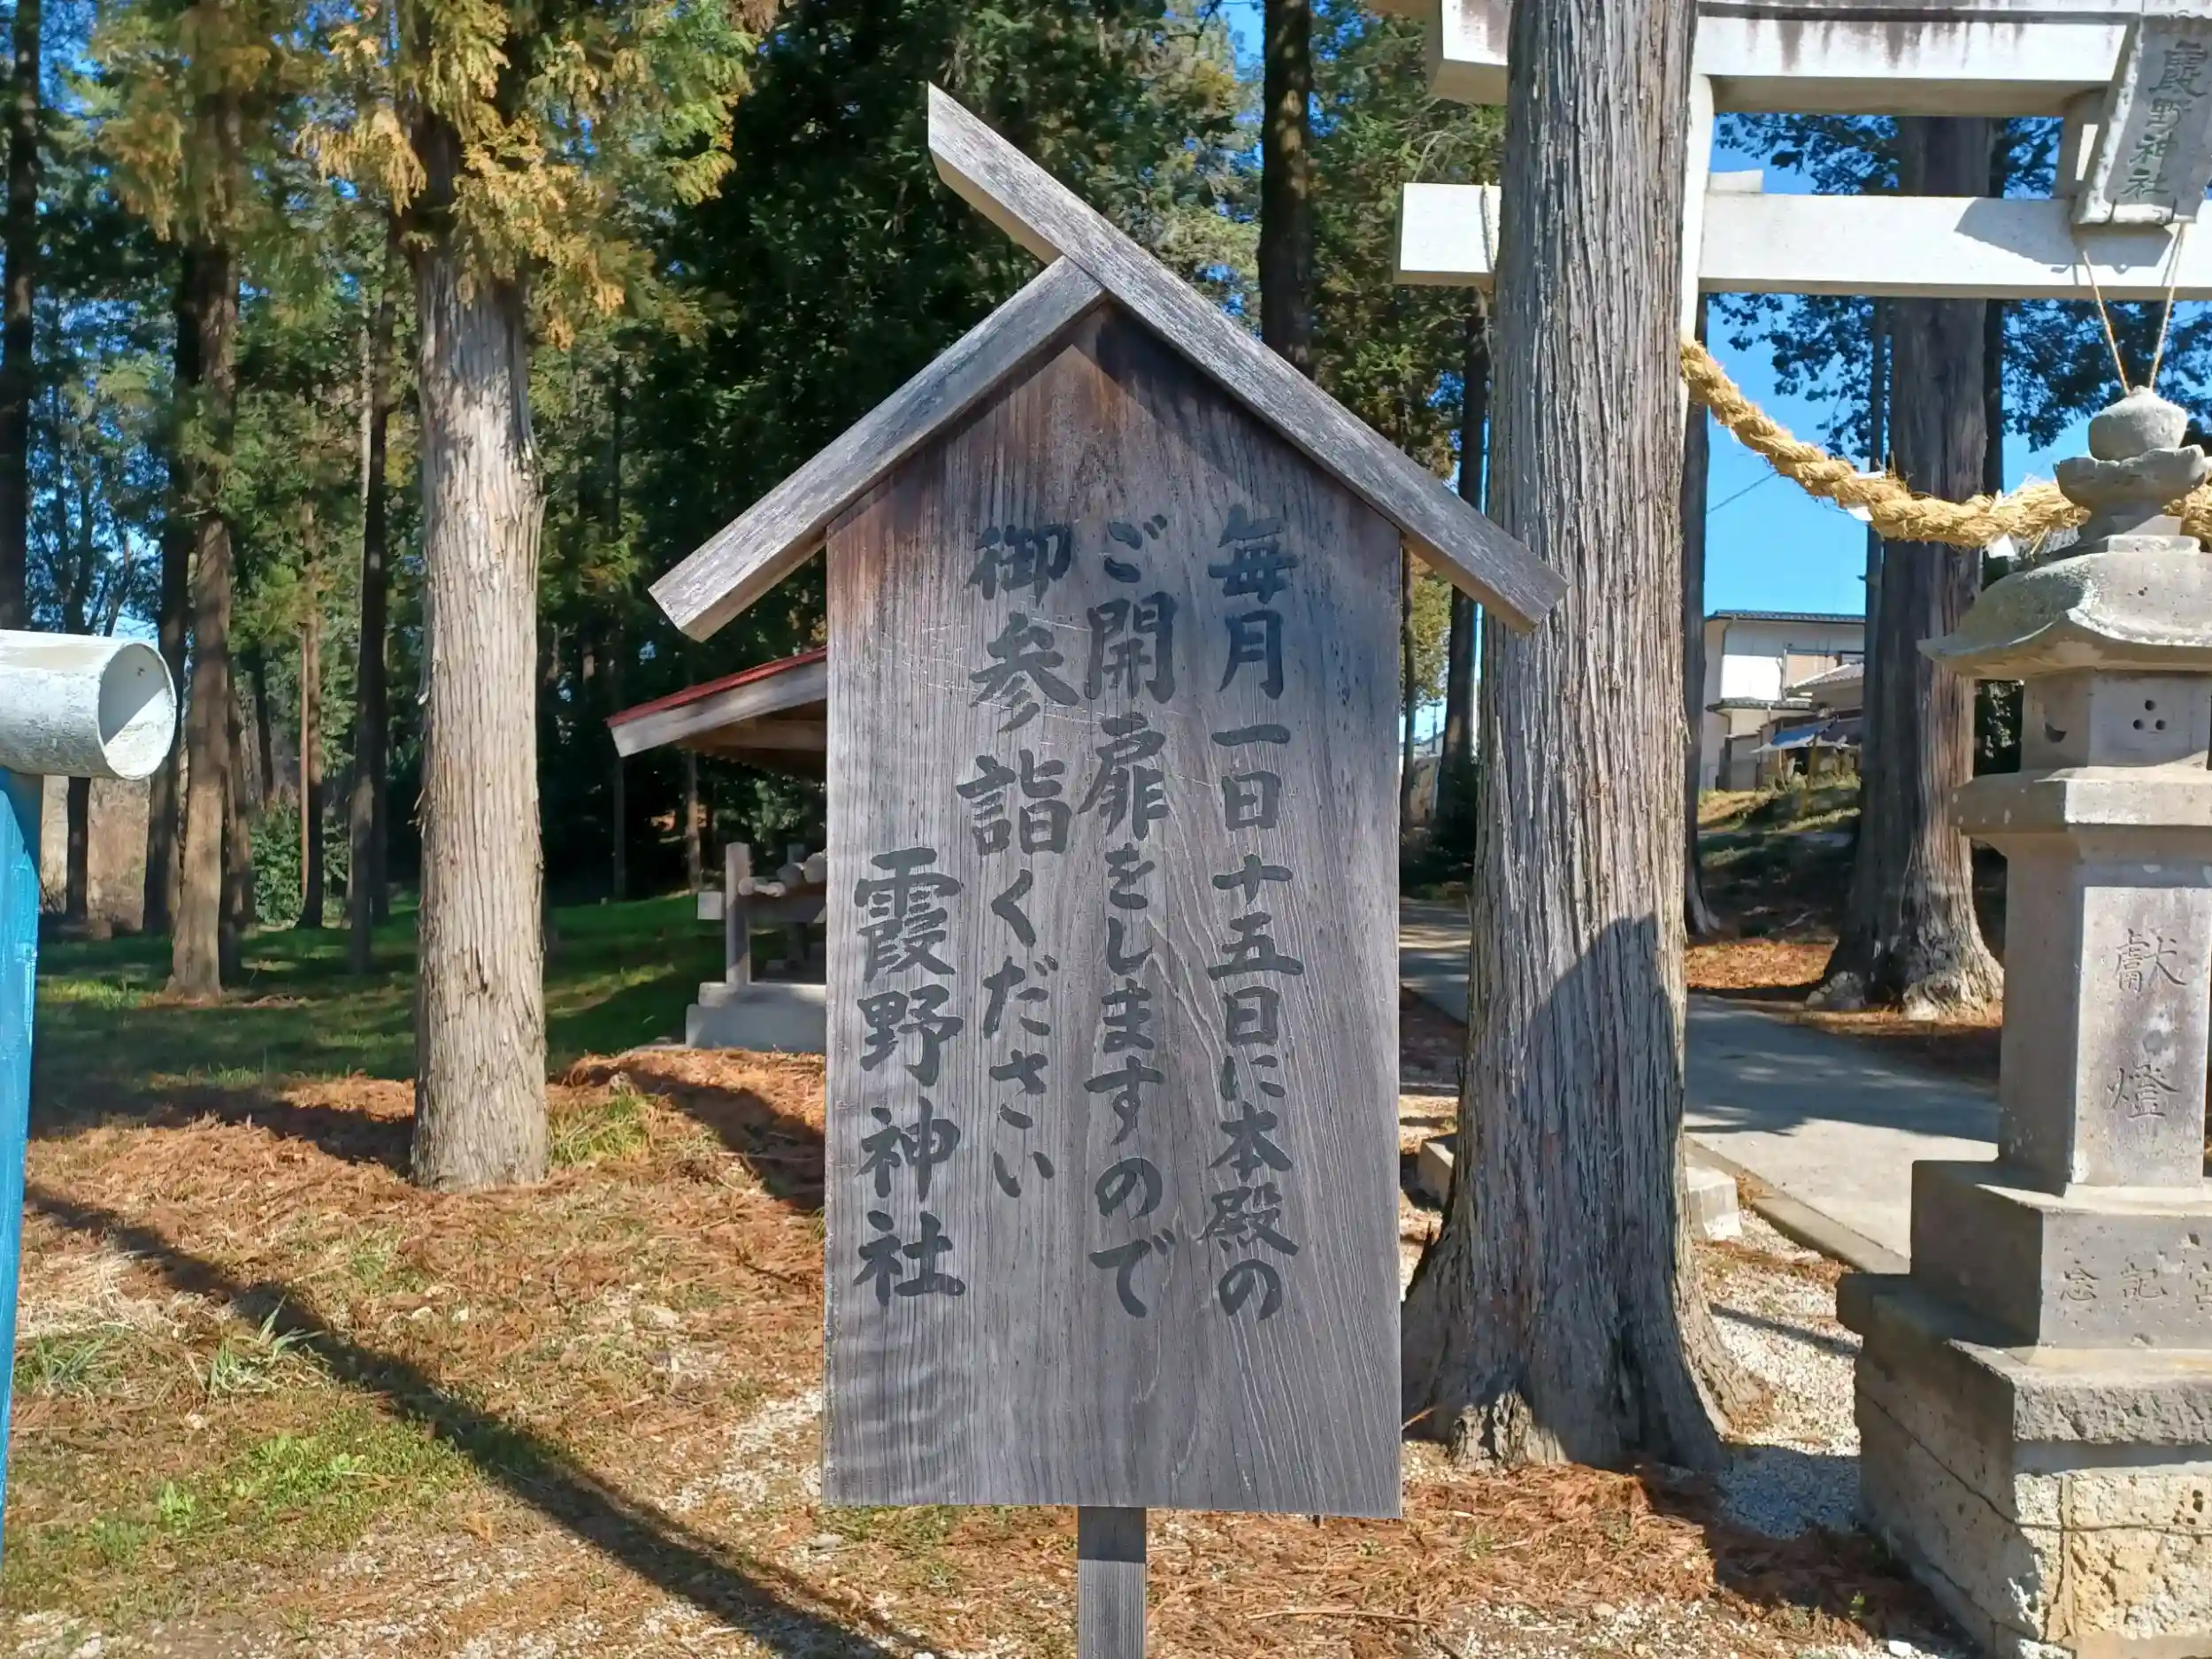 毎月一日十五日に本殿の
ご開扉をしますので
御参詣ください
霞野神社
霞野神社
献燈
記念